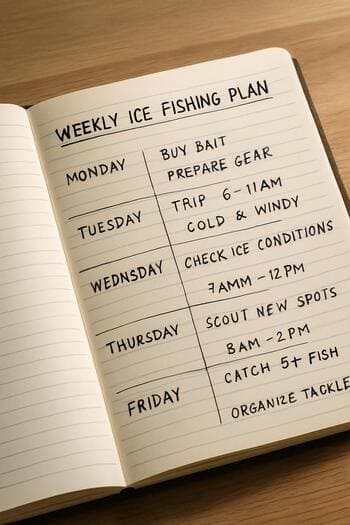 WEEKLY ICE FISHING PLAN
MONDAY
BUY BAIT
PREPARE GEAR
TUESDAY
TRIP 6-11AM
COLD & WINDY
WEDNSDAY
CHECK ICE CONDITIONS
7AMM-12PM
THURSDAY
SCOUT NEW SPOTS
8AM-2PM
FRIDAY
CATCH 5+ FISH
ORGANIZE TACKLE